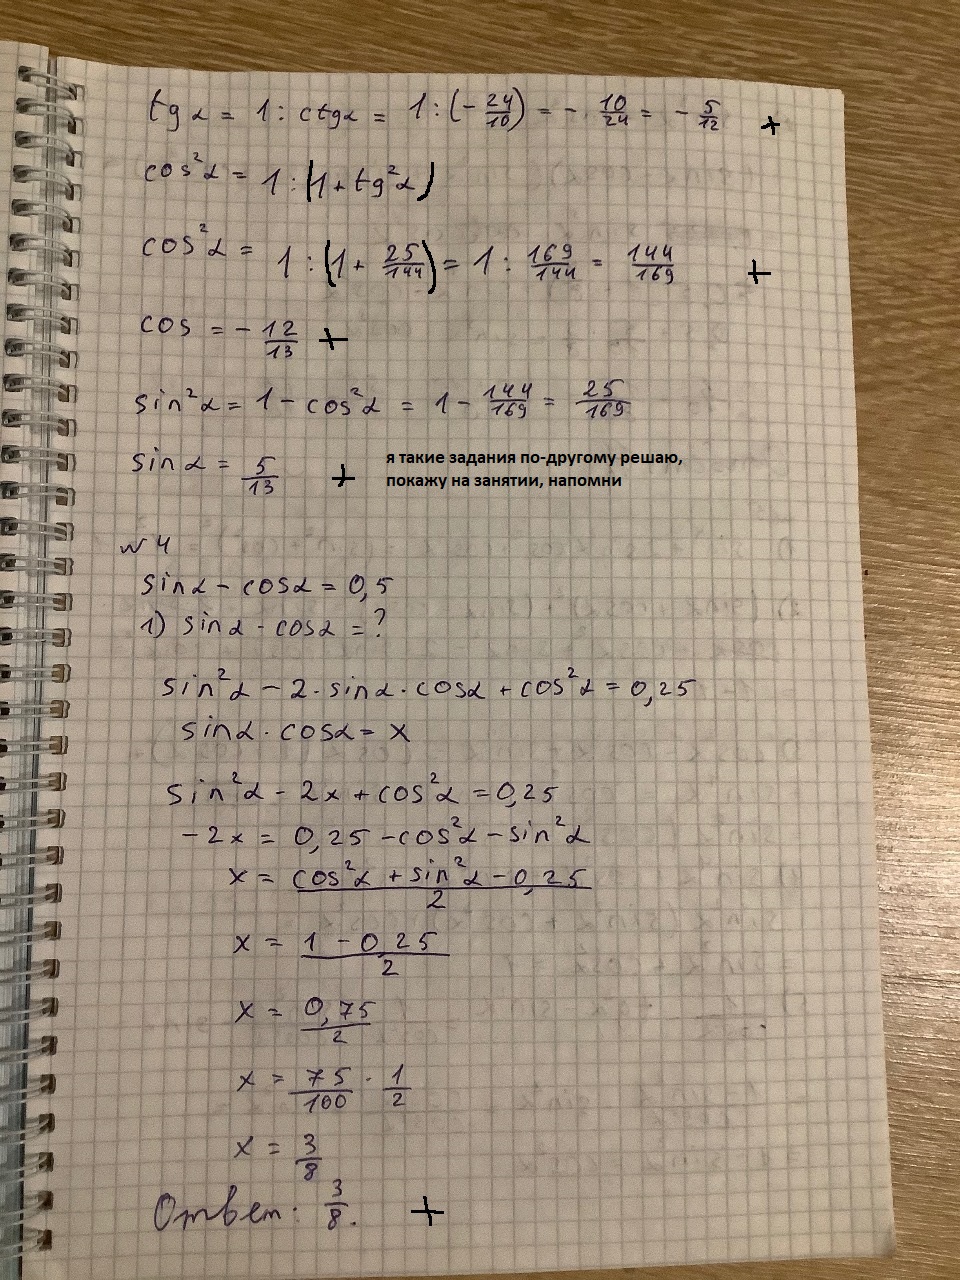 tg α = 1 : ctg α = 1 : (- 24/10) = - 10/24 = - 5/12 +
cos²α = 1 : (1 + tg²α)
cos²α = 1 : (1 + 25/144) = 1 : 169/144 = 144/169 +
cos = - 12/13 +
sin²α = 1 - cos²α = 1 - 144/169 = 25/169
sin α = 5/13 + я такие задания по-другому решаю,
покажу на занятии, напомни
№ 4
sin α - cos α = 0,5
1) sin α · cos α = ?
sin²α - 2 · sin α · cos α + cos²α = 0,25
sin α · cos α = x
sin²α - 2x + cos²α = 0,25
-2x = 0,25 - cos²α - sin²α
x = (cos²α + sin²α - 0,25)/2
x = (1 - 0,25)/2
x = 0,75/2
x = 75/100 · 1/2
x = 3/8
Ответ: 3/8. +